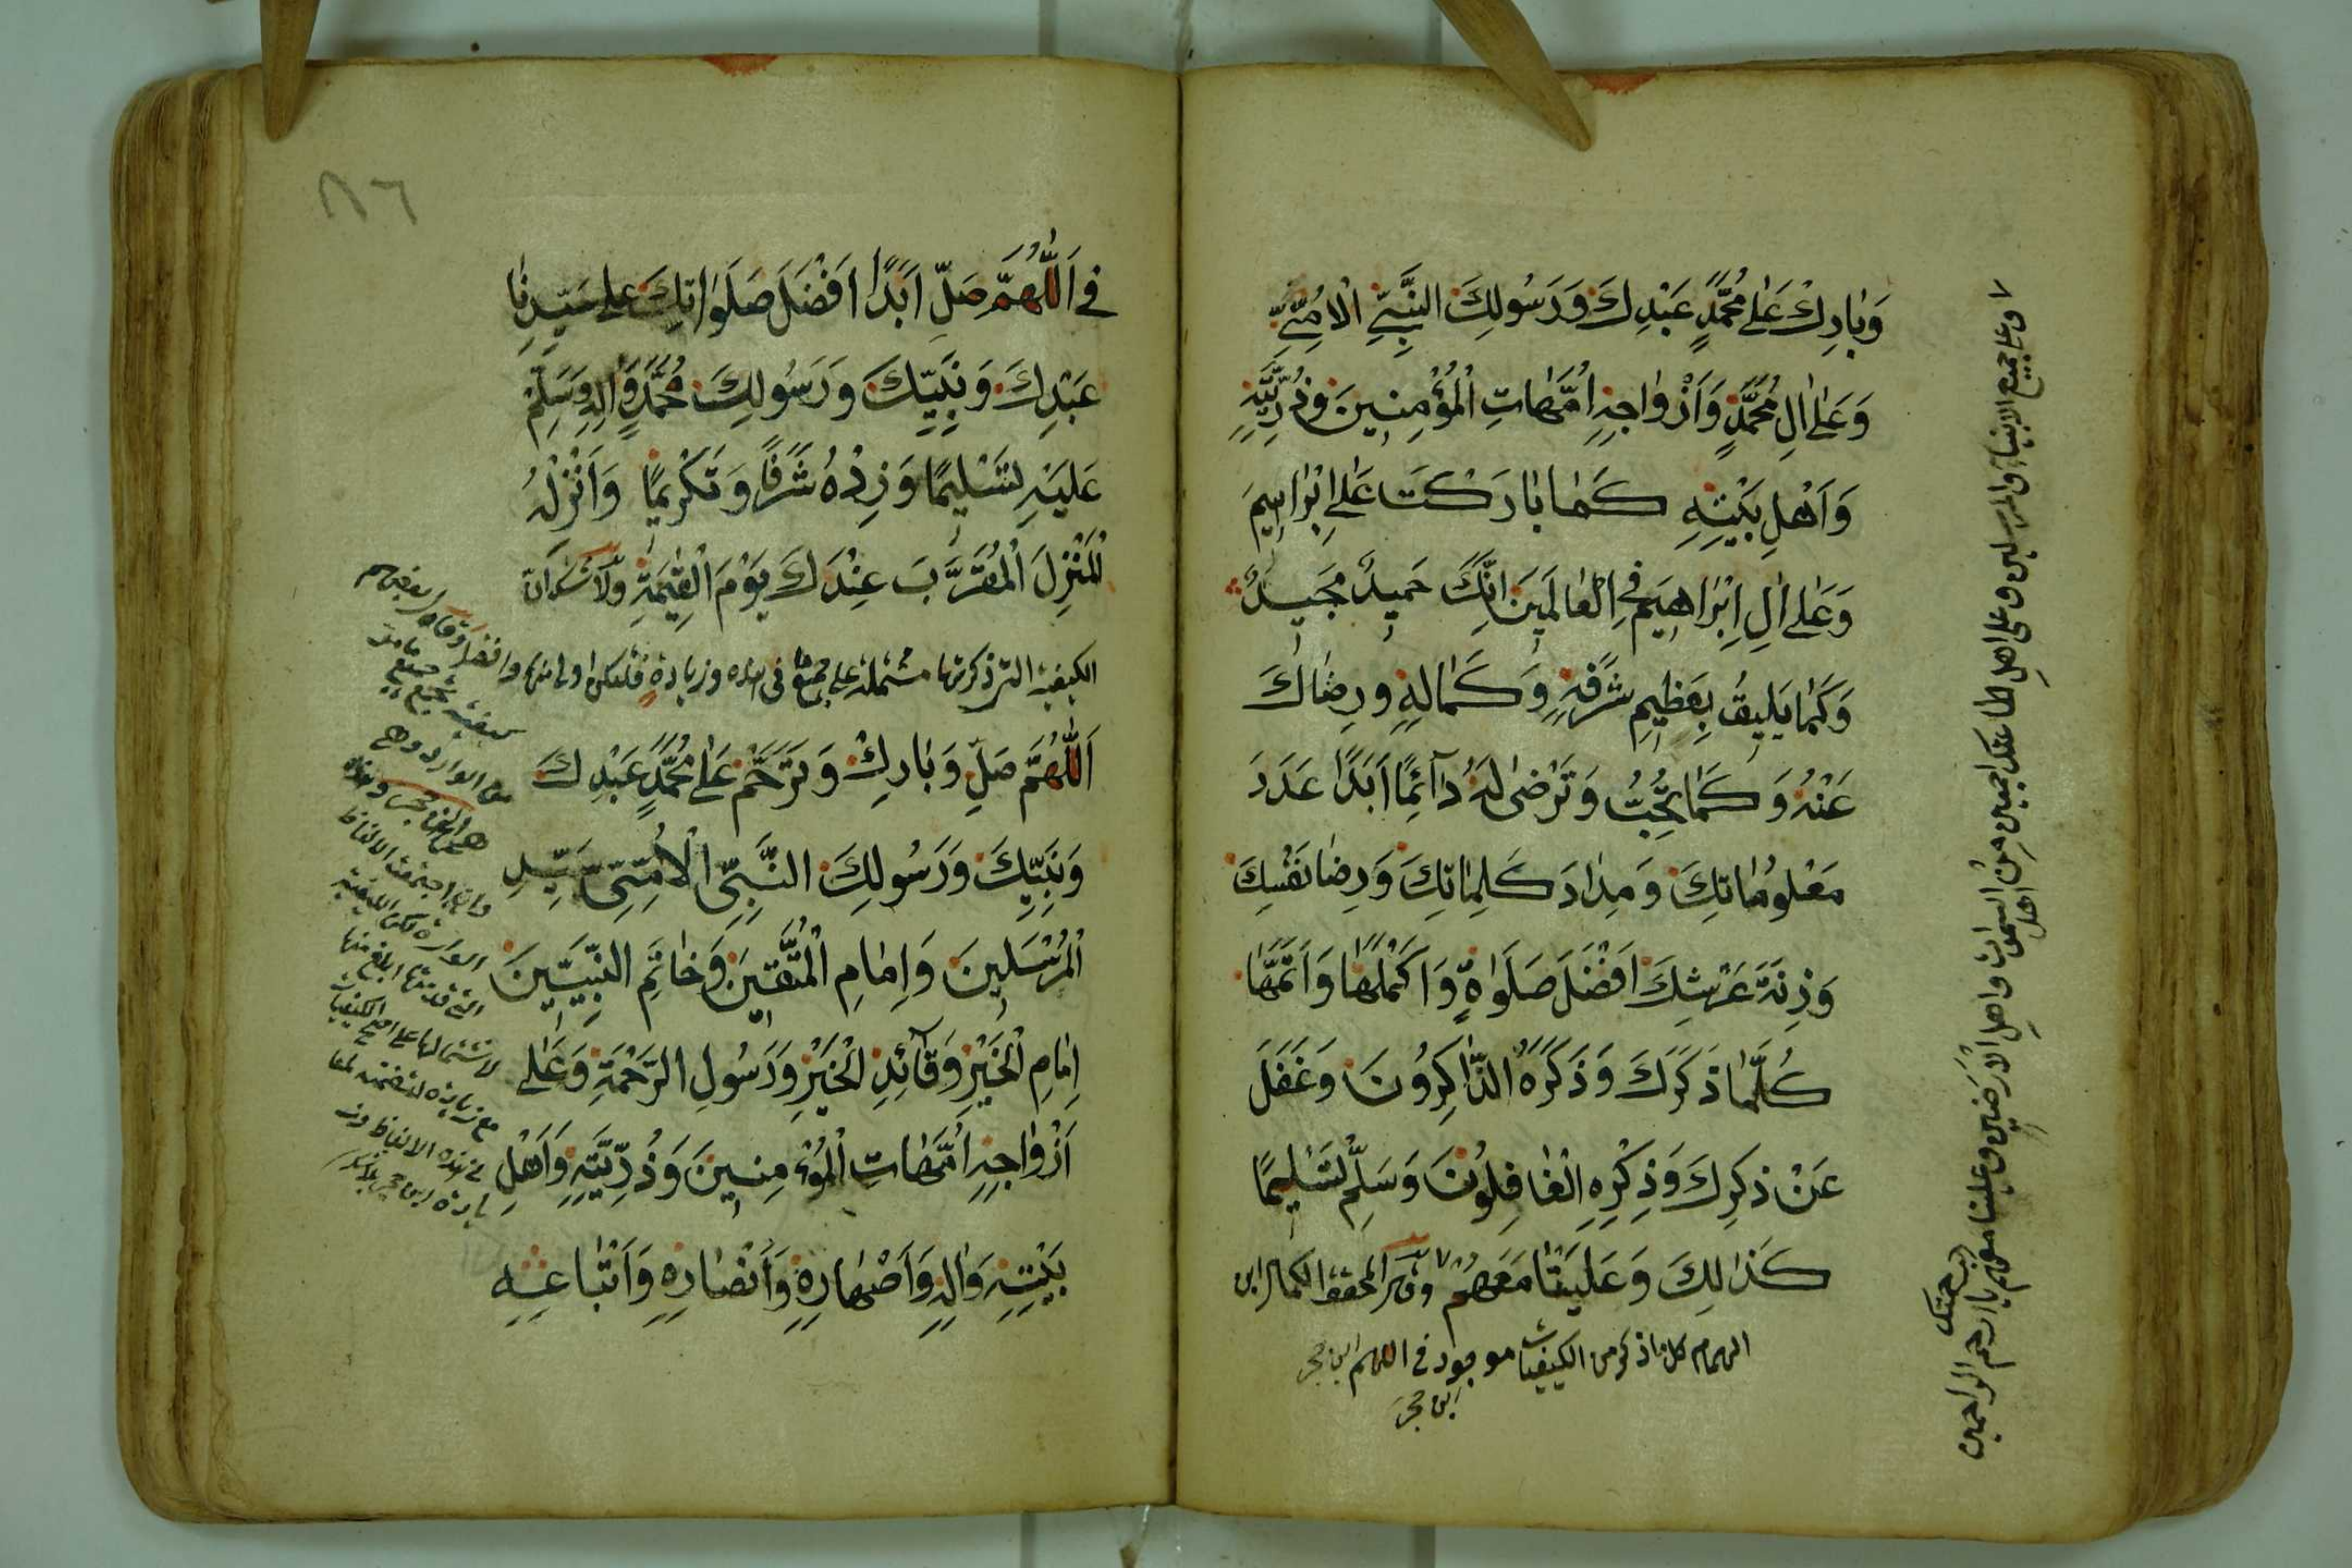 وَبَارِكْ عَلٰى مُحَمَّدٍ عَبْدِكَ وَرَسُولِكَ النَّبِيِّ الْاُمِّيِّ
وَعَلٰى اٰلِ مُحَمَّدٍ وَاَزْوَاجِهِ اُمَّهَاتِ الْمُؤْمِنِينَ وَذُرِّيَّتِهِ
وَاَهْلِ بَيْتِهِ كَمَا بَارَكْتَ عَلٰى اِبْرَاهِيمَ
وَعَلٰى اٰلِ اِبْرَاهِيمَ فِي الْعَالَمِينَ اِنَّكَ حَمِيدٌ مَجِيدٌ
وَكَمَا يَلِيقُ بِعَظِيمِ شَرَفِهِ وَكَمَالِهِ وَرِضَاكَ
عَنْهُ وَكَمَا تُحِبُّ وَتَرْضٰى لَهُ دَآئِمًا اَبَدًا عَدَدَ
مَعْلُومَاتِكَ وَمِدَادَ كَلِمَاتِكَ وَرِضَا نَفْسِكَ
وَزِنَةَ عَرْشِكَ اَفْضَلَ صَلَوَاةٍ وَاَكْمَلَهَا وَاَتَمَّهَا
كُلَّمَا ذَكَرَكَ وَذَكَرَهُ الذَّاكِرُونَ وَغَفَلَ
عَنْ ذِكْرِكَ وَذِكْرِهِ الْغَافِلُونَ وَسَلِّمْ تَسْلِيمًا
كَذَالِكَ وَعَلَيْنَا مَعَهُمْ وقال المحقق الكمال ابن
الهمام كل ما ذكر من الكيفيات موجود في اللهم ابن حجر
ابن حجر
وعلى جميع الانبياء والمرسلين وعلى اهل طاعتك اجمعين من اهل السموات واهل الارضين وعلينا معهم يا ارحم الراحمين
٨٦
في اَللّٰهُمَّ صَلِّ اَبَدًا اَفْضَلَ صَلَوَاتِكَ عَلٰى سَيِّدِنَا
عَبْدِكَ وَنَبِيِّكَ وَرَسُولِكَ مُحَمَّدٍ وَاٰلِهِ وَسَلِّمْ
عَلَيْهِ تَسْلِيمًا وَزِدْهُ شَرَفًا وَتَكْرِيمًا وَاَنْزِلْهُ
الْمَنْزِلَ الْمُقَرَّبَ عِنْدَكَ يَوْمَ الْقِيٰمَةِ ولا شك ان
الكيفية التي ذكرتها مشتملة على جميع ما في هذه وزيادة فلتكن اولى منها وافضل
اَللّٰهُمَّ صَلِّ وَبَارِكْ وَتَرَحَّمْ عَلٰى مُحَمَّدٍ عَبْدِكَ
وَنَبِيِّكَ وَرَسُولِكَ النَّبِيِّ الْاُمِّيِّ سَيِّدِ
الْمُرْسَلِينَ وَاِمَامِ الْمُتَّقِينَ وَخَاتَمِ النَّبِيِّينَ
اِمَامِ الْخَيْرِ وَقَآئِدِ الْخَيْرِ وَرَسُولِ الرَّحْمَةِ وَعَلٰى
اَزْوَاجِهِ اُمَّهَاتِ الْمُؤْمِنِينَ وَذُرِّيَّتِهِ وَاَهْلِ
بَيْتِهِ وَاٰلِهِ وَاَصْهَارِهِ وَاَنْصَارِهِ وَاَتْبَاعِهِ
من الوارد
الواردة لكن الكيفية
التي قدمتها ابلغ منها
لاشتمالها على اصح الكيفيات
مع زيادة
هذه الالفاظ